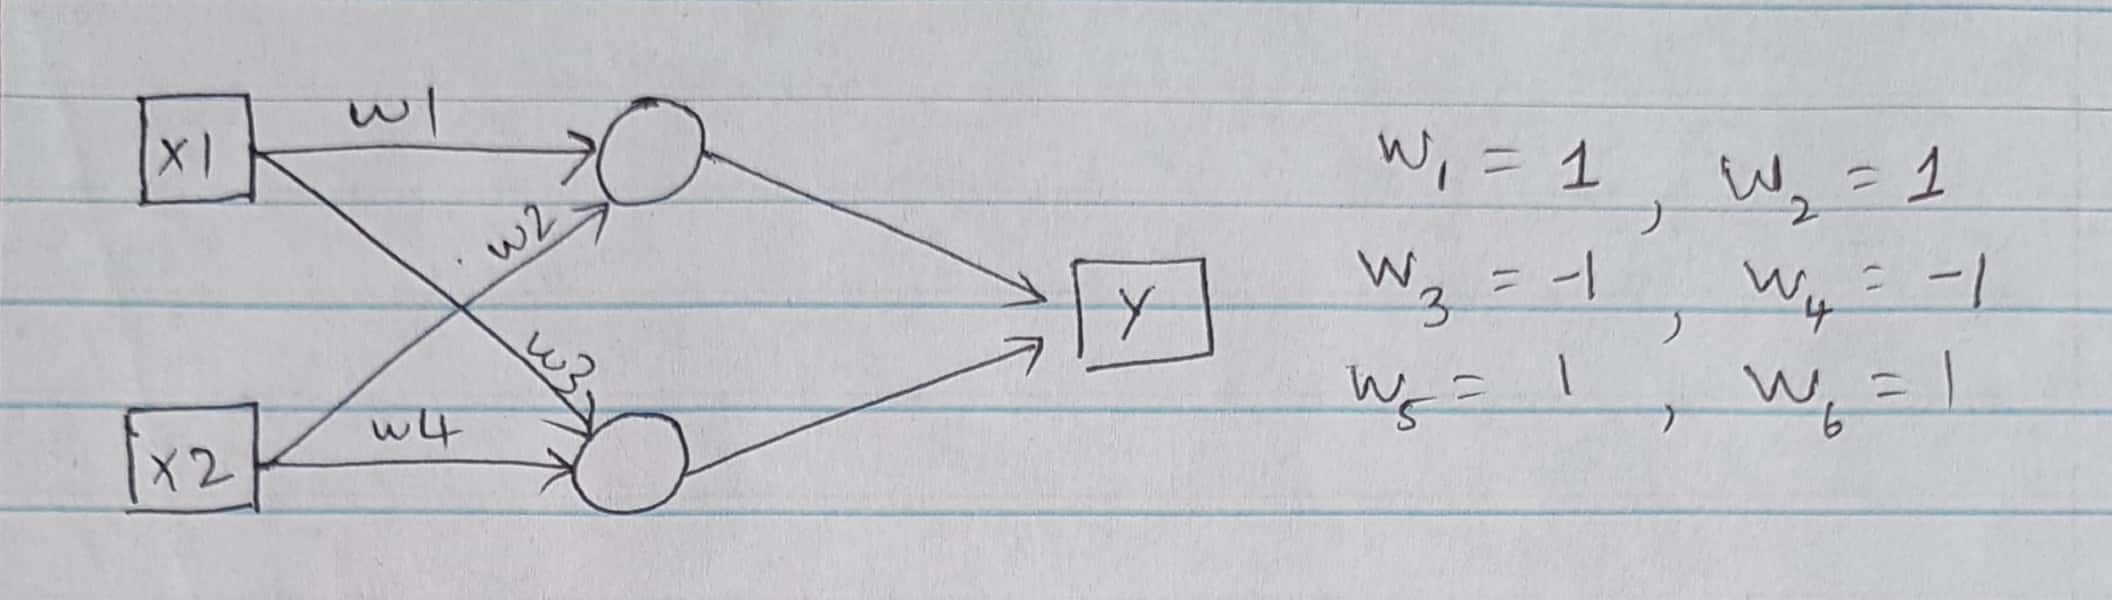 x1
w1
w2
w3
w4
x2
y
w₁ = 1 , w₂ = 1
w₃ = -1 , w₄ = -1
w₅ = 1 , w₆ = 1